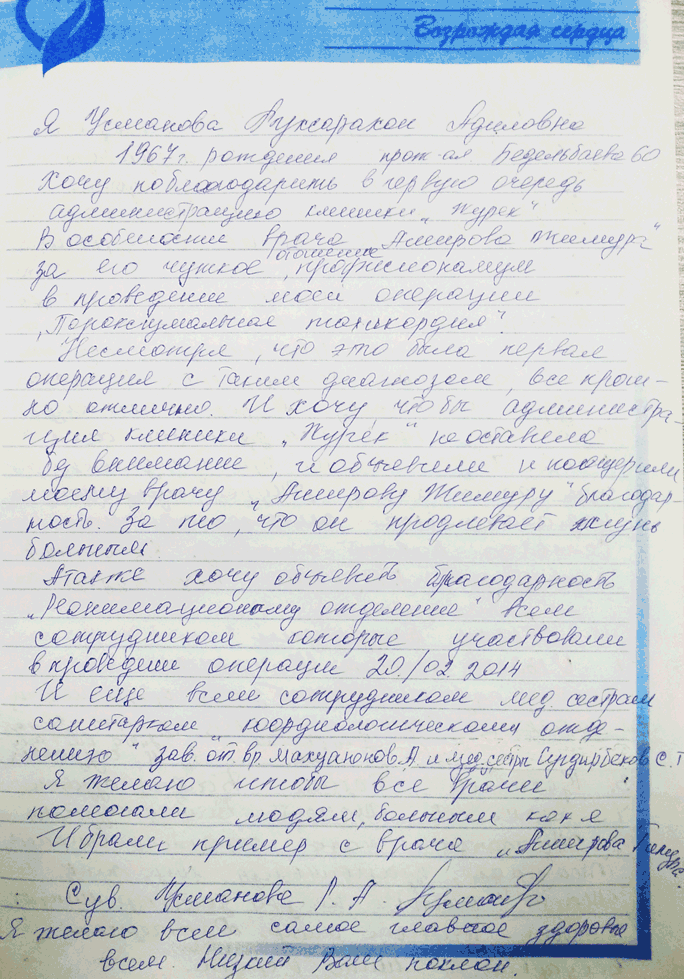 Возрождая сердца
Я Усманова Рухсарахон Адиловна
1967г. рождения прож-ая Бедельбаева 60
Хочу поблагодарить в первую очередь
администрацию клиники „Журек"
В особености врача „Амирова Тимура"
за его чуткое отношение, профессионализм
в проведение моей операции
„Пароксизмальная тахикордия".
Несмотря, что это была первая
операция с таким диагнозом все прош-
ло отлично. И хочу чтобы администра-
ция клиники „Журек" не оставила
без внимание, и объявили и поощерили
моему врачу „Амирову Тимуру" благодар-
ность. За то, что он продлевает жизнь
больным.
А также хочу объявить благодарность
„Реанимационому отделению" всем
сотрудником которые участвовали
в проведение операции 20./02.2014
И еще всем сотрудником мед. сестрам
санитаркам „кордиологическому отде-
лению" зав. от. вр А и мед. сестры С. Т
Я желаю чтобы все врачи
помогали людям, больным как я
И брали пример с врача „Амирова Тимура".
С ув. Усманова Р. А.
Я желаю всем самое главное здоровье
всем. Низкий Вам поклон